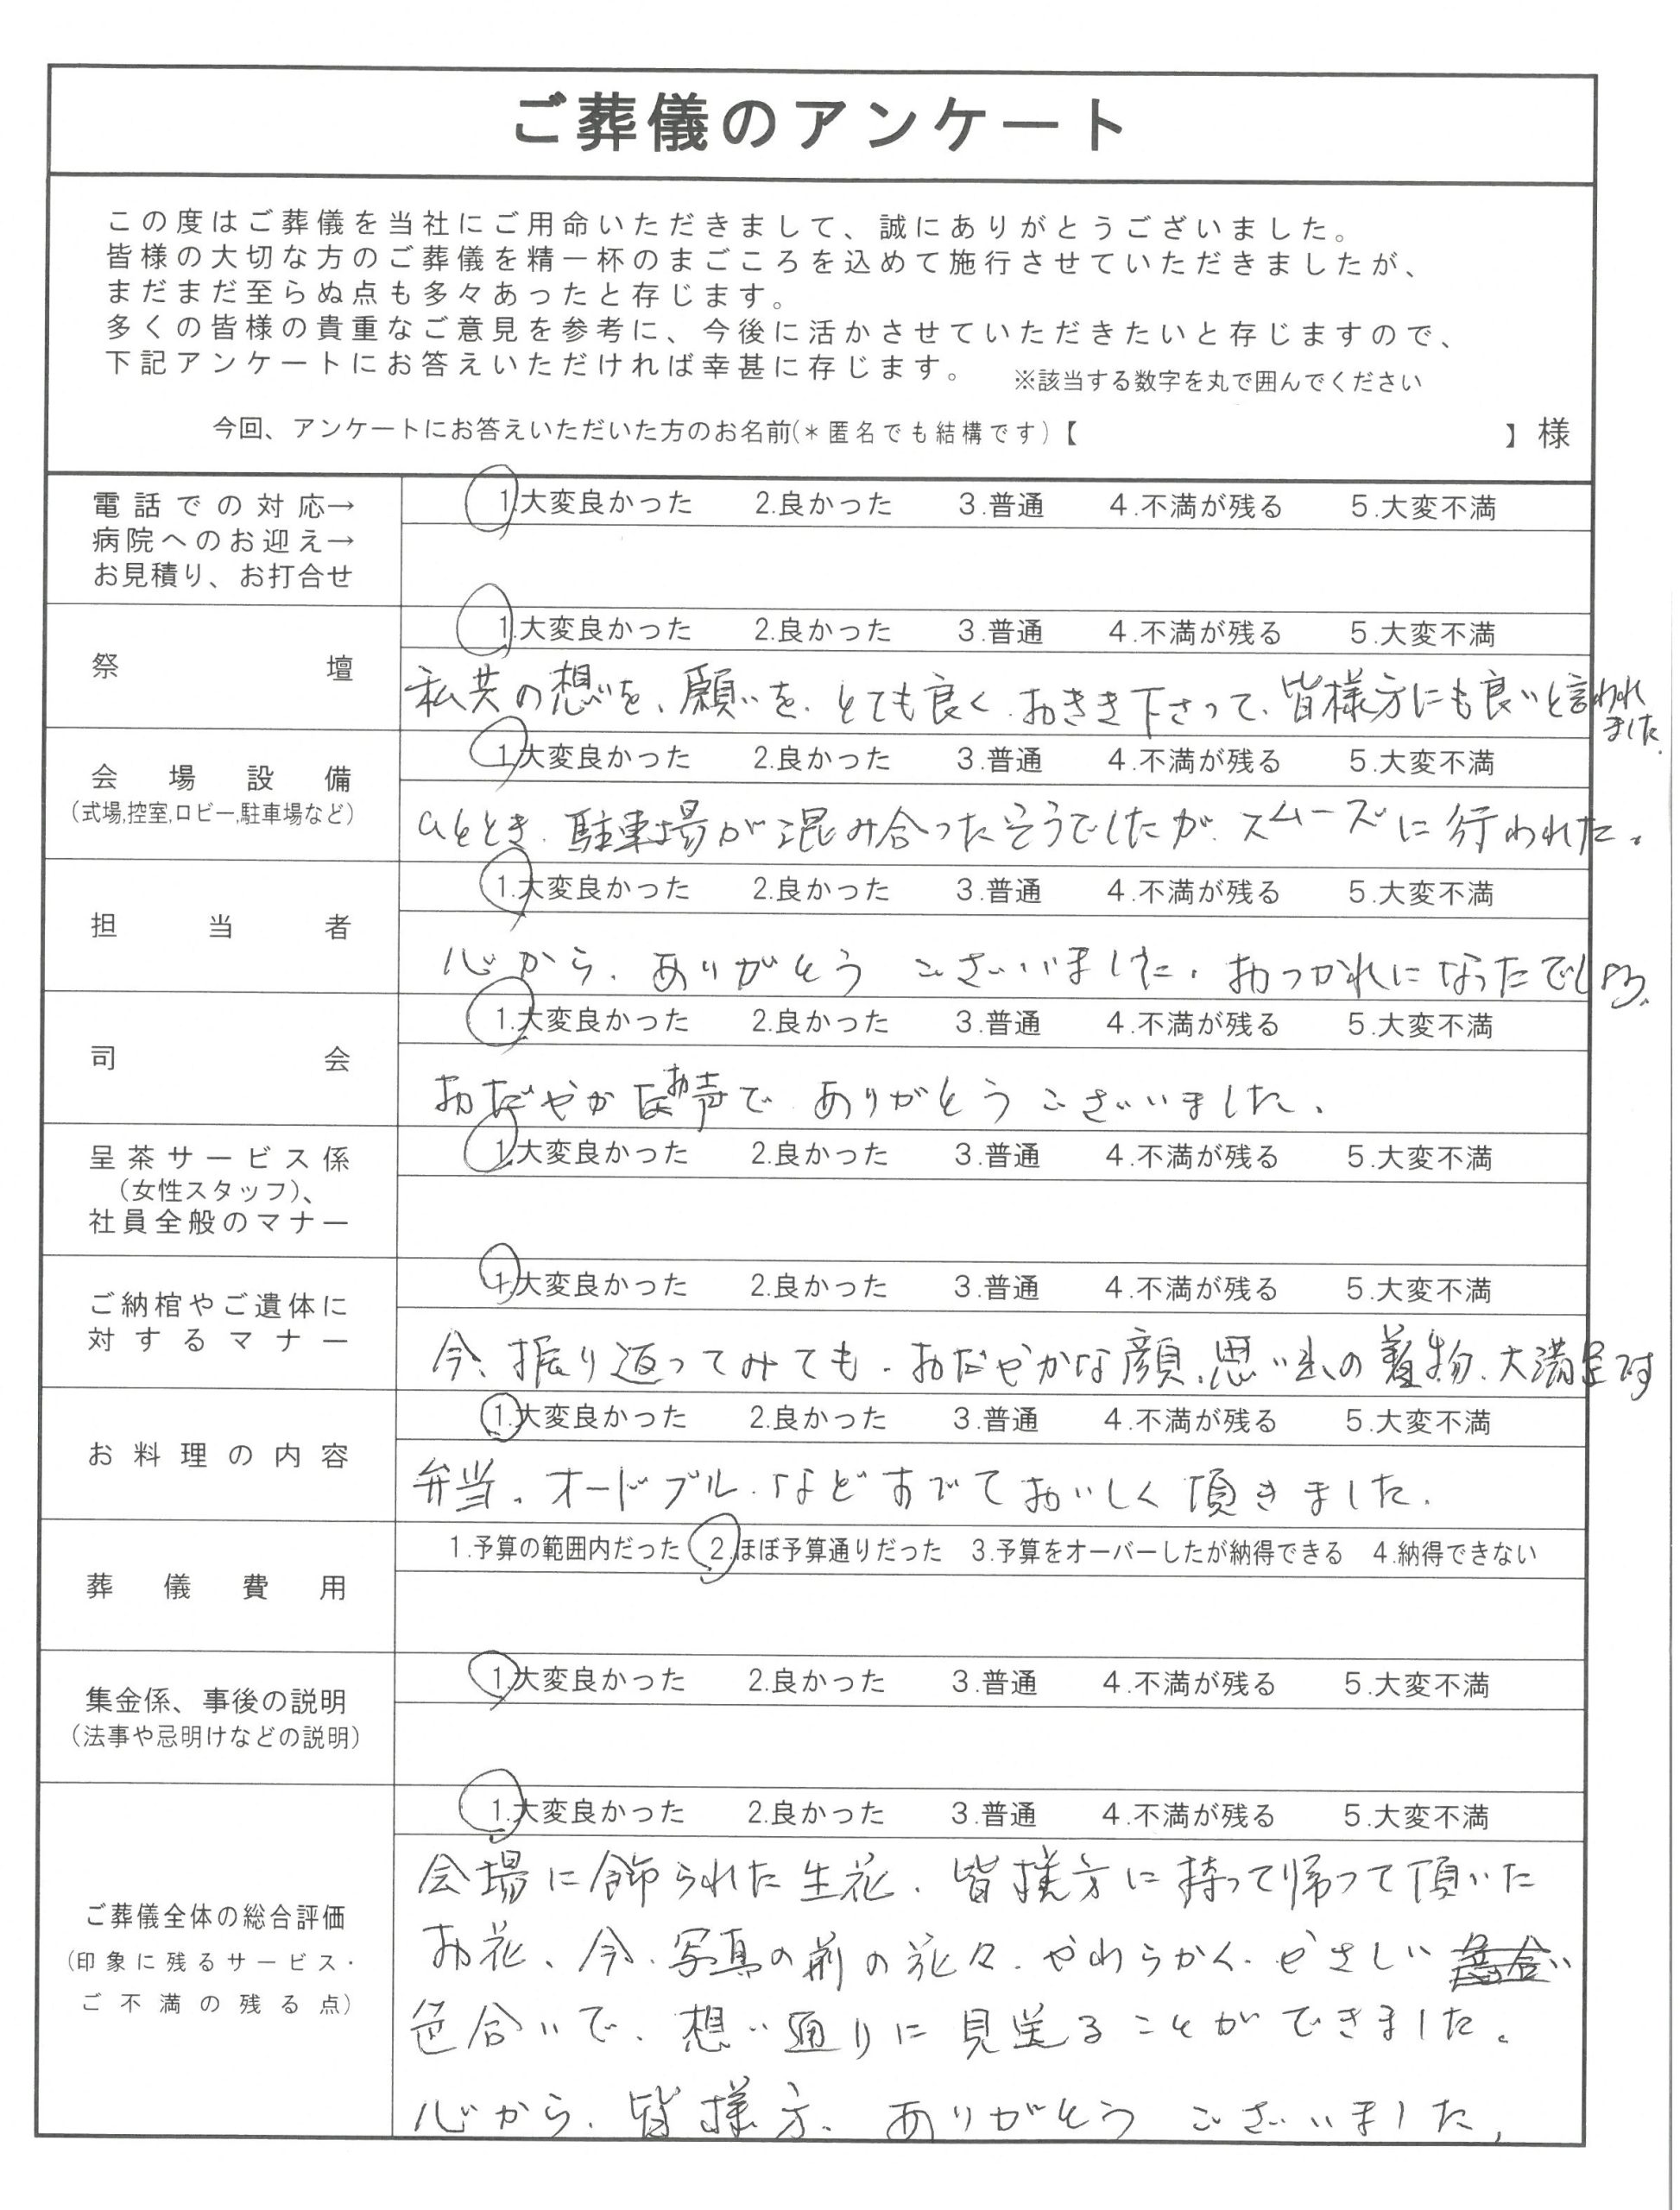 ご葬儀のアンケート
この度はご葬儀を当社にご用命いただきまして、誠にありがとうございました。
皆様の大切な方のご葬儀を精一杯のまごころを込めて施行させていただきましたが、
まだまだ至らぬ点も多々あったと存じます。
多くの皆様の貴重なご意見を参考に、今後に活かさせていただきたいと存じますので、
下記アンケートにお答えいただければ幸甚に存じます。 ※該当する数字を丸で囲んでください
今回、アンケートにお答えいただいた方のお名前(*匿名でも結構です)【 】様
電話での対応→
病院へのお迎え→
お見積り、お打合せ
1.大変良かった 2.良かった 3.普通 4.不満が残る 5.大変不満
祭壇
1.大変良かった 2.良かった 3.普通 4.不満が残る 5.大変不満
私共の想いを、願いを、とても良く、おきき下さって、皆様方にも良いと言われ
ました。
会場設備
(式場,控室,ロビー,駐車場など)
1.大変良かった 2.良かった 3.普通 4.不満が残る 5.大変不満
ひととき、駐車場が混み合ったそうでしたが、スムーズに行われた。
担当者
1.大変良かった 2.良かった 3.普通 4.不満が残る 5.大変不満
心から、ありがとうございました。おつかれになったでしょう。
司会
1.大変良かった 2.良かった 3.普通 4.不満が残る 5.大変不満
おだやかなお声で、ありがとうございいました。
呈茶サービス係
(女性スタッフ)、
社員全般のマナー
1.大変良かった 2.良かった 3.普通 4.不満が残る 5.大変不満
ご納棺やご遺体に
対するマナー
1.大変良かった 2.良かった 3.普通 4.不満が残る 5.大変不満
今、振り返ってみても、おだやかな顔、思い出の着物、大満足です
お料理の内容
1.大変良かった 2.良かった 3.普通 4.不満が残る 5.大変不満
弁当、オードブル、などすべておいしく頂きました。
葬儀費用
1.予算の範囲内だった 2.ほぼ予算通りだった 3.予算をオーバーしたが納得できる 4.納得できない
集金係、事後の説明
(法事や忌明けなどの説明)
1.大変良かった 2.良かった 3.普通 4.不満が残る 5.大変不満
ご葬儀全体の総合評価
(印象に残るサービス・
ご不満の残る点)
1.大変良かった 2.良かった 3.普通 4.不満が残る 5.大変不満
会場に飾られた生花、皆様方に持って帰って頂いた
お花、今、写真の前の花々、やわらかく、やさしい
色合いで、想い通りに見送ることができました。
心から、皆様方、ありがとうございいました。